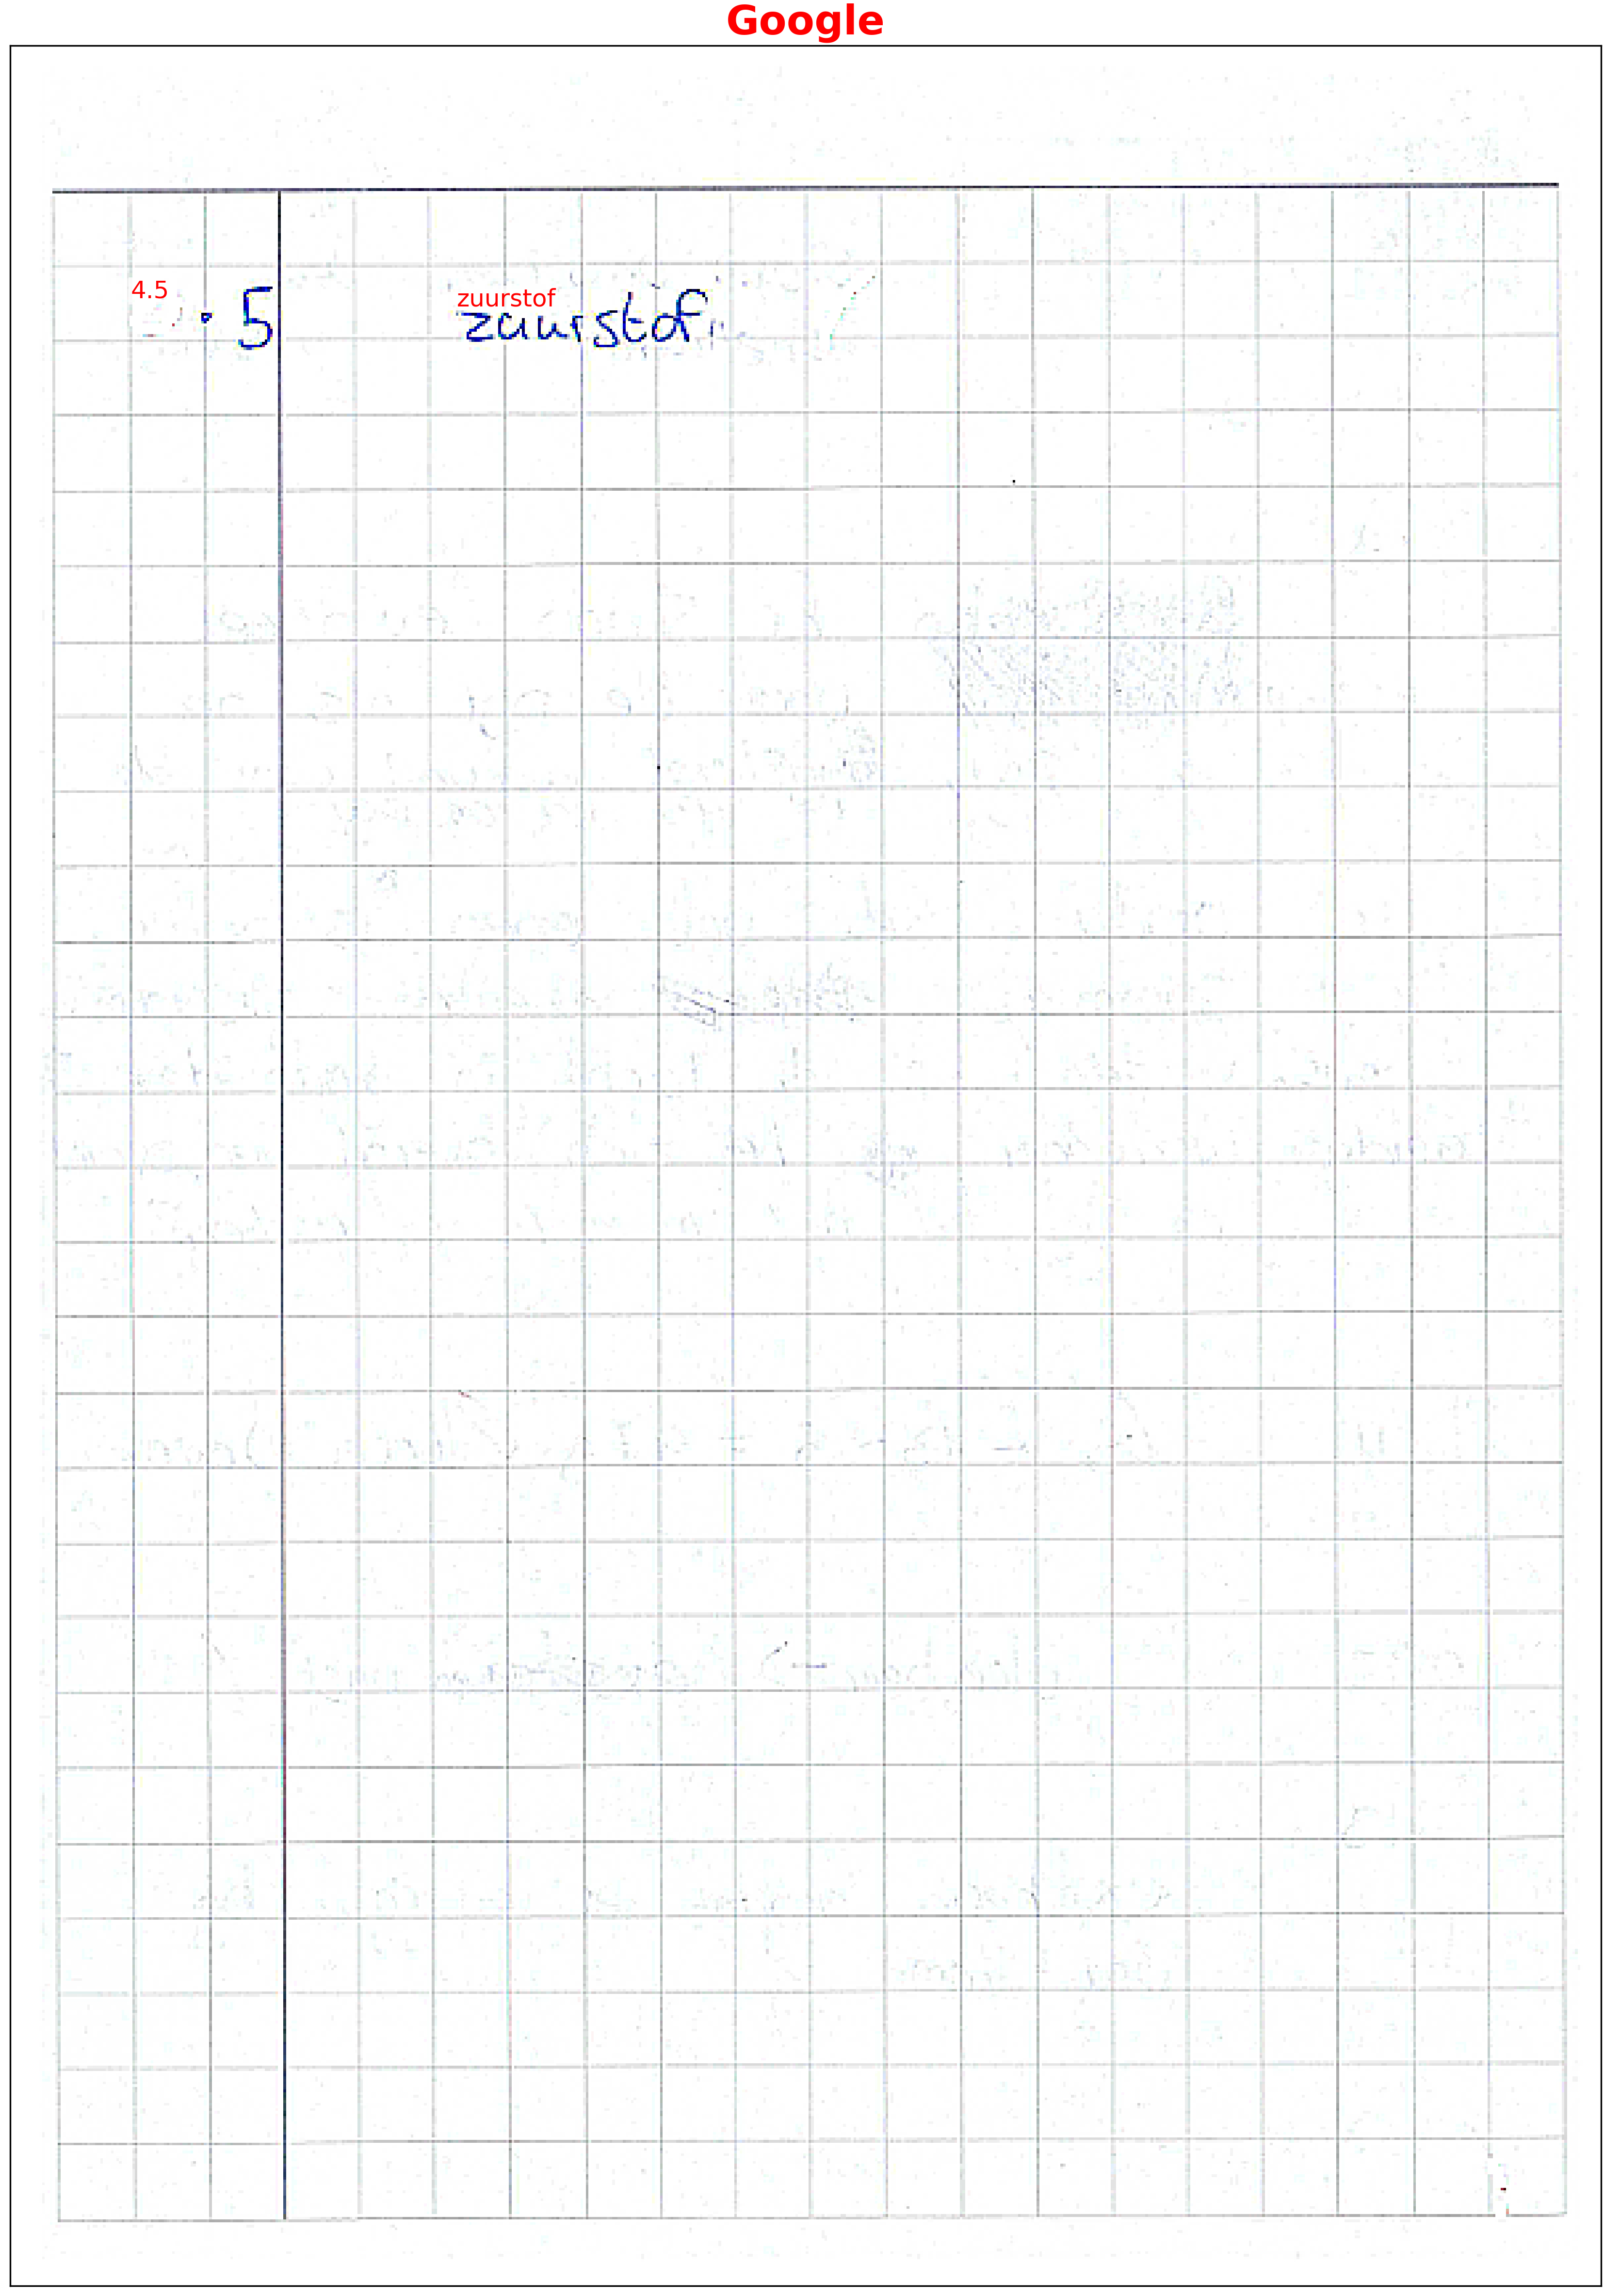 Google
4.5
zuurstof
· 5 zuurstof